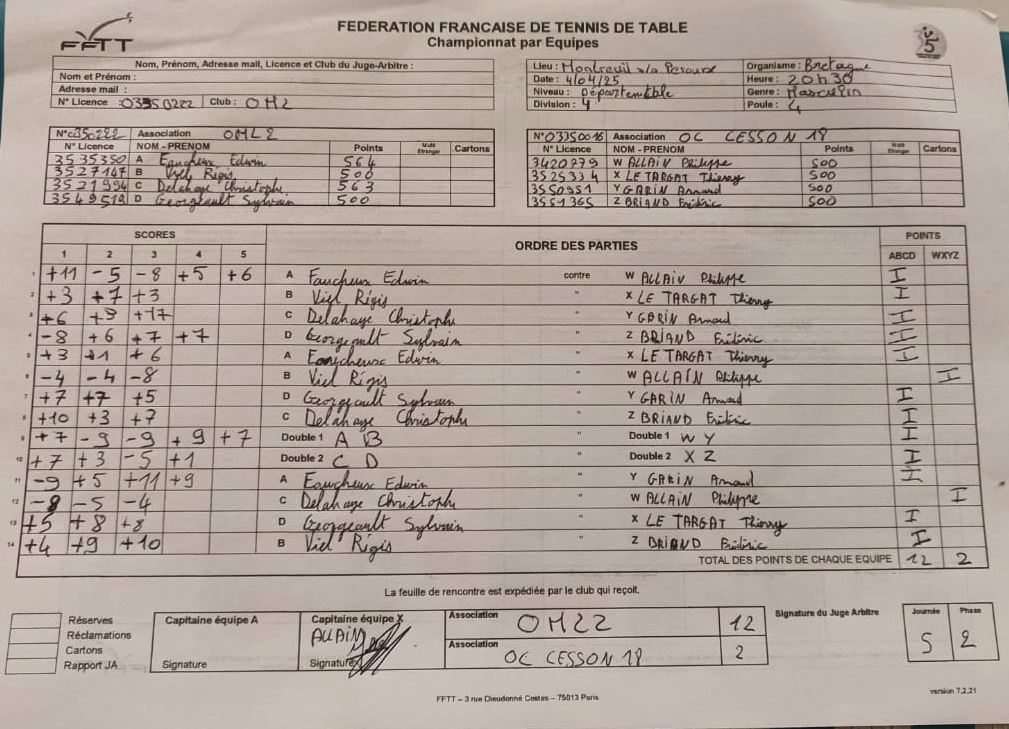 FFTT
FEDERATION FRANCAISE DE TENNIS DE TABLE
Championnat par Equipes
Nom, Prénom, Adresse mail, Licence et Club du Juge-Arbitre :
Nom et Prénom :
Adresse mail :
N° Licence : 03350222 Club : OM22
Lieu : Montreuil s/s Perouse
Date : 4/04/25
Niveau : Départemtable
Division : 4
Organisme : Bretagne
Heure : 20h30
Genre : Masculin
Poule : 4
N° 0350222 Association OML2
N° Licence NOM - PRENOM Points Muté Etranger Cartons
3535350 A Faucheux Edwin 564
3527147 B Viel Régis 500
3521994 C Delahaye Christophe 563
3549519 D Georgeault Sylvain 500
N° 03350016 Association OC CESSON 18
N° Licence NOM - PRENOM Points Muté Etranger Cartons
3420979 W ALLAIN Philippe 500
3525334 X LE TARGAT Thierry 500
3550951 Y GARIN Arnaud 500
3551365 Z BRIAND Frédéric 500
SCORES ORDRE DES PARTIES POINTS
1 2 3 4 5 ABCD WXYZ
1 +11 -5 -8 +5 +6 A Faucheux Edwin contre W ALLAIN Philippe I
2 +3 +7 +3 B Viel Régis " X LE TARGAT Thierry I
3 +6 +9 +17 C Delahaye Christophe " Y GARIN Arnaud I
4 -8 +6 +7 +7 D Georgeault Sylvain " Z BRIAND Frédéric I
5 +3 +1 +6 A Faucheux Edwin " X LE TARGAT Thierry I
6 -4 -4 -8 B Viel Régis " W ALLAIN Philippe I
7 +7 +7 +5 D Georgeault Sylvain " Y GARIN Arnaud I
8 +10 +3 +7 C Delahaye Christophe " Z BRIAND Frédéric I
9 +7 -9 -9 +9 +7 Double 1 A B " Double 1 W Y I
10 +7 +3 -5 +1 Double 2 C D " Double 2 X Z I
11 -9 +5 +11 +9 A Faucheux Edwin " Y GARIN Arnaud I
12 -8 -5 -4 C Delahaye Christophe " W ALLAIN Philippe I
13 +5 +8 +8 D Georgeault Sylvain " X LE TARGAT Thierry I
14 +4 +9 +10 B Viel Régis " Z BRIAND Frédéric I
TOTAL DES POINTS DE CHAQUE EQUIPE 12 2
La feuille de rencontre est expédiée par le club qui reçoit.
Réserves
Réclamations
Cartons
Rapport JA
Capitaine équipe A
Signature
Capitaine équipe X
ALLAIN
Signature
Association OM22 12
Association OC CESSON 18 2
Signature du Juge Arbitre
Journée Phase
5 2
FFTT – 3 rue Dieudonné Costes – 75013 Paris
version 7.2.21